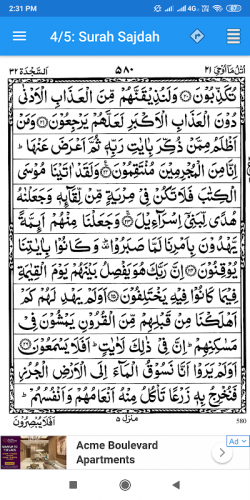 2:31 PM
4G
64
4/5: Surah Sajdah
السجدة ٣٢ ٥٨٠ اتل ما اوحی ٢١
تُكَذِّبُوْنَ ﴿٢٠﴾ وَلَنُذِيْقَنَّهُمْ مِّنَ الْعَذَابِ الْاَدْنٰى
دُوْنَ الْعَذَابِ الْاَكْبَرِ لَعَلَّهُمْ يَرْجِعُوْنَ ﴿٢١﴾ وَمَنْ
اَظْلَمُ مِمَّنْ ذُكِّرَ بِاٰيٰتِ رَبِّهٖ ثُمَّ اَعْرَضَ عَنْهَا ؕ
اِنَّا مِنَ الْمُجْرِمِيْنَ مُنْتَقِمُوْنَ ﴿٢٢﴾ وَلَقَدْ اٰتَيْنَا مُوْسَى
الْكِتٰبَ فَلَا تَكُنْ فِيْ مِرْيَةٍ مِّنْ لِّقَآئِهٖ وَجَعَلْنٰهُ
هُدًى لِّبَنِيْٓ اِسْرَآءِيْلَ ﴿٢٣﴾ وَجَعَلْنَا مِنْهُمْ اَئِمَّةً
يَّهْدُوْنَ بِاَمْرِنَا لَمَّا صَبَرُوْا ؕ وَكَانُوْا بِاٰيٰتِنَا
يُوْقِنُوْنَ ﴿٢٤﴾ اِنَّ رَبَّكَ هُوَ يَفْصِلُ بَيْنَهُمْ يَوْمَ الْقِيٰمَةِ
فِيْمَا كَانُوْا فِيْهِ يَخْتَلِفُوْنَ ﴿٢٥﴾ اَوَلَمْ يَهْدِ لَهُمْ كَمْ
اَهْلَكْنَا مِنْ قَبْلِهِمْ مِّنَ الْقُرُوْنِ يَمْشُوْنَ فِيْ
مَسٰكِنِهِمْ ؕ اِنَّ فِيْ ذٰلِكَ لَاٰيٰتٍ ؕ اَفَلَا يَسْمَعُوْنَ ﴿٢٦﴾
اَوَلَمْ يَرَوْا اَنَّا نَسُوْقُ الْمَآءَ اِلَى الْاَرْضِ الْجُرُزِ
فَنُخْرِجُ بِهٖ زَرْعًا تَاْكُلُ مِنْهُ اَنْعَامُهُمْ وَاَنْفُسُهُمْ ؕ
اَفَلَا يُبْصِرُوْنَ منزل ٥ 580
Ad
Acme Boulevard
Apartments